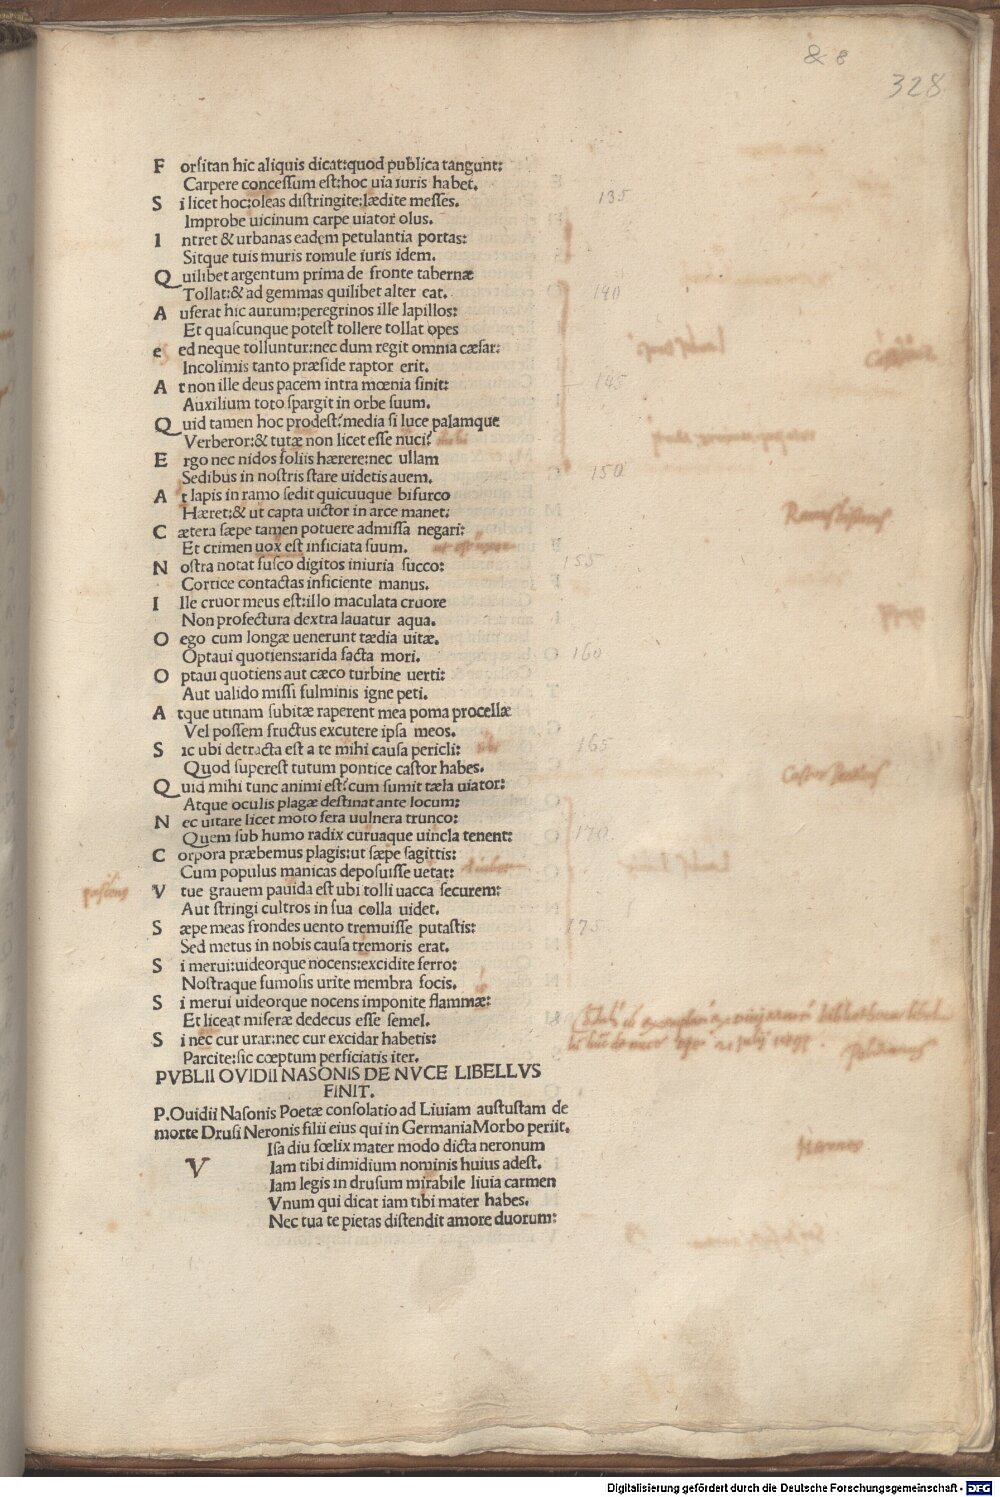 & 8
328
F orsitan hic aliquis dicat:quod publica tangunt:
Carpere concessum est:hoc uia iuris habet.
S i licet hoc:oleas distringite:lædite messes. 135
Improbe uicinum carpe uiator olus.
I ntret & urbanas eadem petulantia portas:
Sitque tuis muris romule iuris idem.
Q uilibet argentum prima de fronte tabernæ
Tollat:& ad gemmas quilibet alter eat. 140
A uferat hic aurum:peregrinos ille lapillos:
Et quascunque potest tollere tollat opes
e ed neque tolluntur:nec dum regit omnia cæsar:
Incolimis tanto præside raptor erit.
A t non ille deus pacem intra mœnia finit: 145
Auxilium toto spargit in orbe suum.
Q uid tamen hoc prodest?media si luce palamque
Verberor:& tutæ non licet esse nuci?
E rgo nec nidos foliis hærere:nec ullam
Sedibus in nostris stare uidetis auem. 150
A t lapis in ramo sedit quicuuque bifurco
Hæret:& ut capta uictor in arce manet:
C ætera sæpe tamen potuere admissa negari:
Et crimen uox est inficiata suum.
N ostra notat fusco digitos iniuria succo: 155
Cortice contactas inficiente manus.
I lle cruor meus est:illo maculata cruore
Non profectura dextra lauatur aqua.
O ego cum longæ uenerunt tædia uitæ.
Optaui quotiens:arida facta mori. 160
O ptaui quotiens aut cæco turbine uerti:
Aut ualido missi fulminis igne peti.
A tque utinam subitæ raperent mea poma procellæ
Vel possem fructus excutere ipsa meos.
S ic ubi detracta est a te mihi causa pericli: 165
Quod superest tutum pontice castor habes.
Q uid mihi tunc animi est?cum sumit tæla uiator:
Atque oculis plagæ destinat ante locum:
N ec uitare licet moto fera uulnera trunco:
Quem sub humo radix curuaque uincla tenent: 170
C orpora præbemus plagis:ut sæpe sagittis:
Cum populus manicas deposuisse uetat:
V tue grauem pauida est ubi tolli uacca securem:
Aut stringi cultros in sua colla uidet.
S æpe meas frondes uento tremuisse putastis: 175
Sed metus in nobis causa tremoris erat.
S i merui:uideorque nocens:excidite ferro:
Nostraque fumosis urite membra focis.
S i merui uideorque nocens imponite flammæ:
Et liceat miseræ dedecus esse semel.
S i nec cur urar:nec cur excidar habetis:
Parcite:sic cœptum perficiatis iter.
PVBLII OVIDII NASONIS DE NVCE LIBELLVS
FINIT.
P.Ouidii Nasonis Poetæ consolatio ad Liuiam austustam de
morte Drusi Neronis filii eius qui in GermaniaMorbo periit.
V Isa diu fœlix mater modo dicta neronum
Iam tibi dimidium nominis huius adest.
Iam legis in drusum mirabile liuia carmen
Vnum qui dicat iam tibi mater habes.
Nec tua te pietas distendit amore duorum:
Digitalisierung gefördert durch die Deutsche Forschungsgemeinschaft - DFG